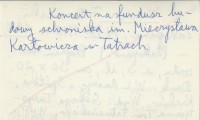 Koncert na fundusz bu-
dowy schroniska im. Mieczysława
Karłowicza w Tatrach